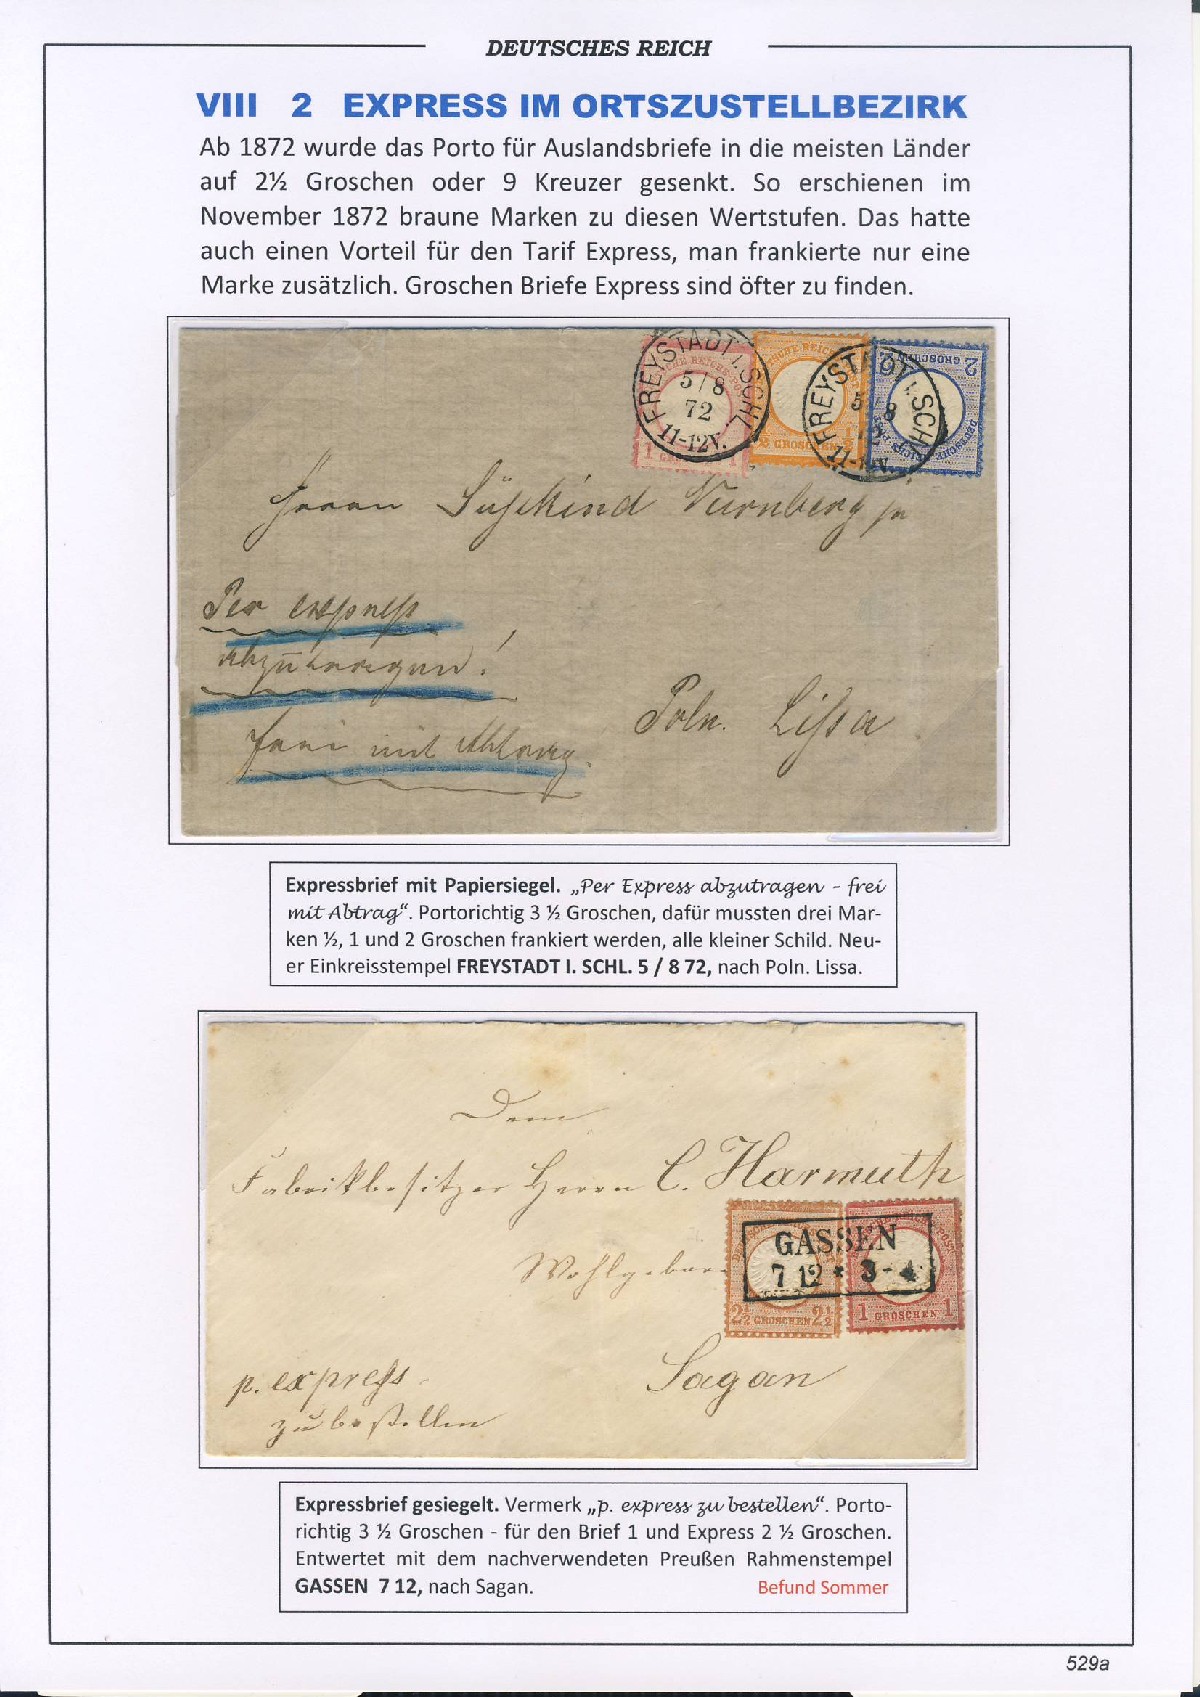 DEUTSCHES REICH
VIII 2 EXPRESS IM ORTSZUSTELLBEZIRK
Ab 1872 wurde das Porto für Auslandsbriefe in die meisten Länder
auf 2½ Groschen oder 9 Kreuzer gesenkt. So erschienen im
November 1872 braune Marken zu diesen Wertstufen. Das hatte
auch einen Vorteil für den Tarif Express, man frankierte nur eine
Marke zusätzlich. Groschen Briefe Express sind öfter zu finden.
FREYSTADT I. SCHL.
5 / 8
72
11-12V.
FREYSTADT I. SCHL.
5 / 8
72
11-12V.
GROSCHEN
2 GROSCHEN 2
Herrn Süßkind Nürnberg jr
Per express
abzutragen!
frei mit Abtrag.
Poln. Lissa
Expressbrief mit Papiersiegel. „Per Express abzutragen - frei
mit Abtrag“. Portorichtig 3 ½ Groschen, dafür mussten drei Mar-
ken ½, 1 und 2 Groschen frankiert werden, alle kleiner Schild. Neu-
er Einkreisstempel FREYSTADT I. SCHL. 5 / 8 72, nach Poln. Lissa.
Dem
Fabrikbesitzer Herrn C. Harmuth
Wohlgeboren
GASSEN
7 12 * 3-4
2½ GROSCHEN 2½
1 GROSCHEN 1
Sagan
p. express
zu bestellen
Expressbrief gesiegelt. Vermerk „p. express zu bestellen“. Porto-
richtig 3 ½ Groschen - für den Brief 1 und Express 2 ½ Groschen.
Entwertet mit dem nachverwendeten Preußen Rahmenstempel
GASSEN 7 12, nach Sagan. Befund Sommer
529a